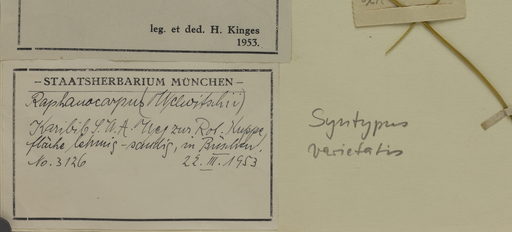 leg. et ded. H. Kinges
1953.
– STAATSHERBARIUM MÜNCHEN –
Raphanocarpus Welwitschii)
Karibib S.W.A. Weg zur Rot. Kuppe,
fläche lehmig-sandig, in Büschen.
No. 3126 22. III. 1953
Syntypus
varietatis